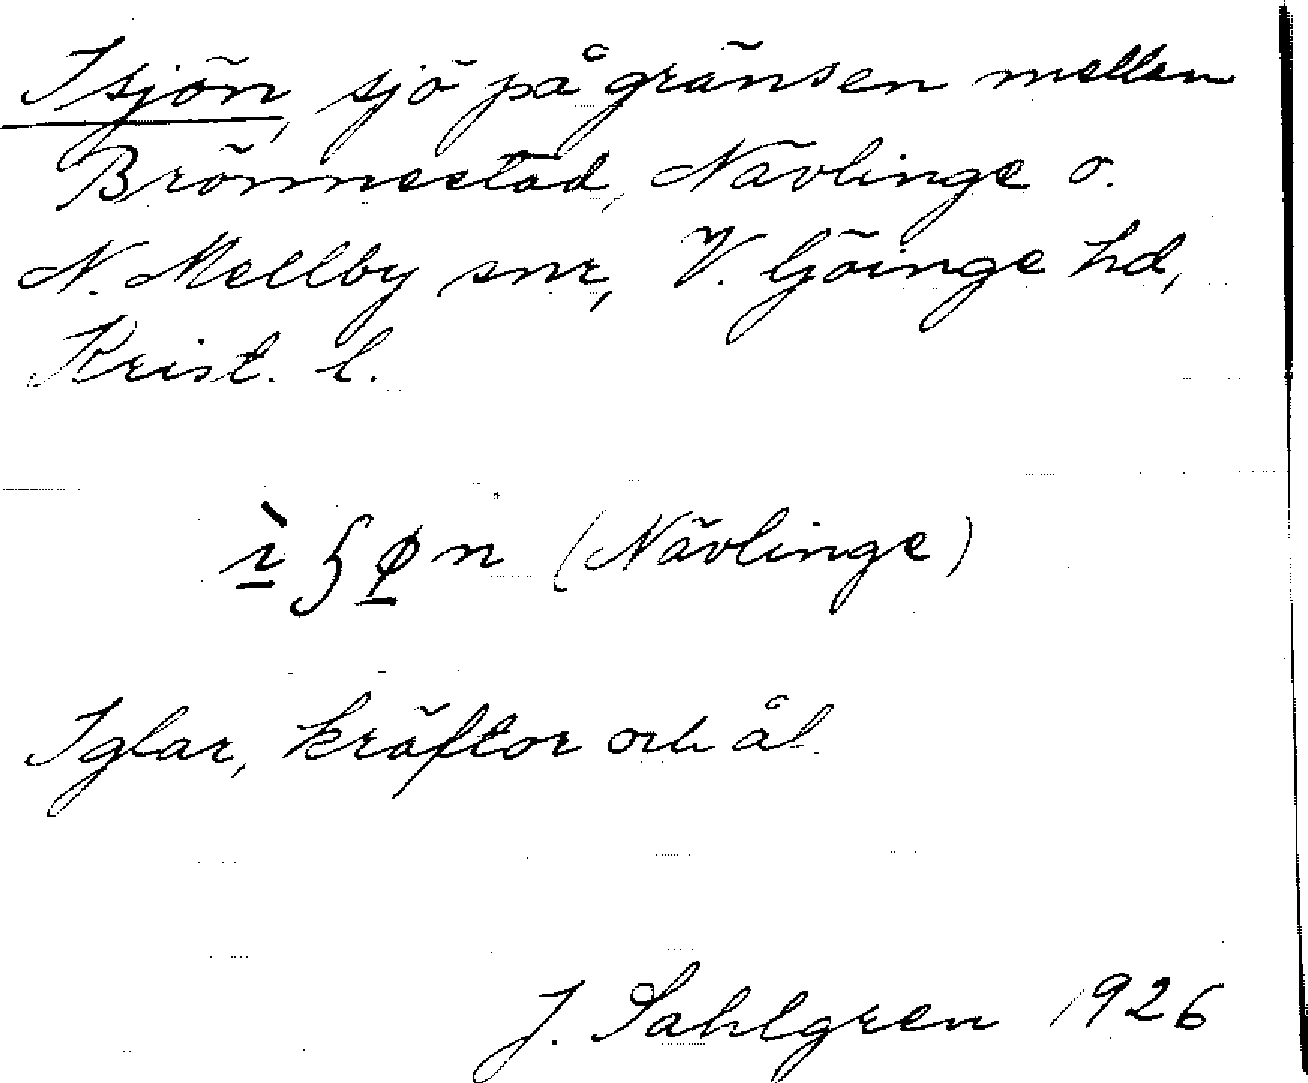 Isjön, sjö på gränsen mellan
Brönnestad, Nävlinge o.
N. Mellby snr, V. Göinge hd,
Krist. l.
(Nävlinge)
Iglar, kräftor och ål.
J. Sahlgren 1926